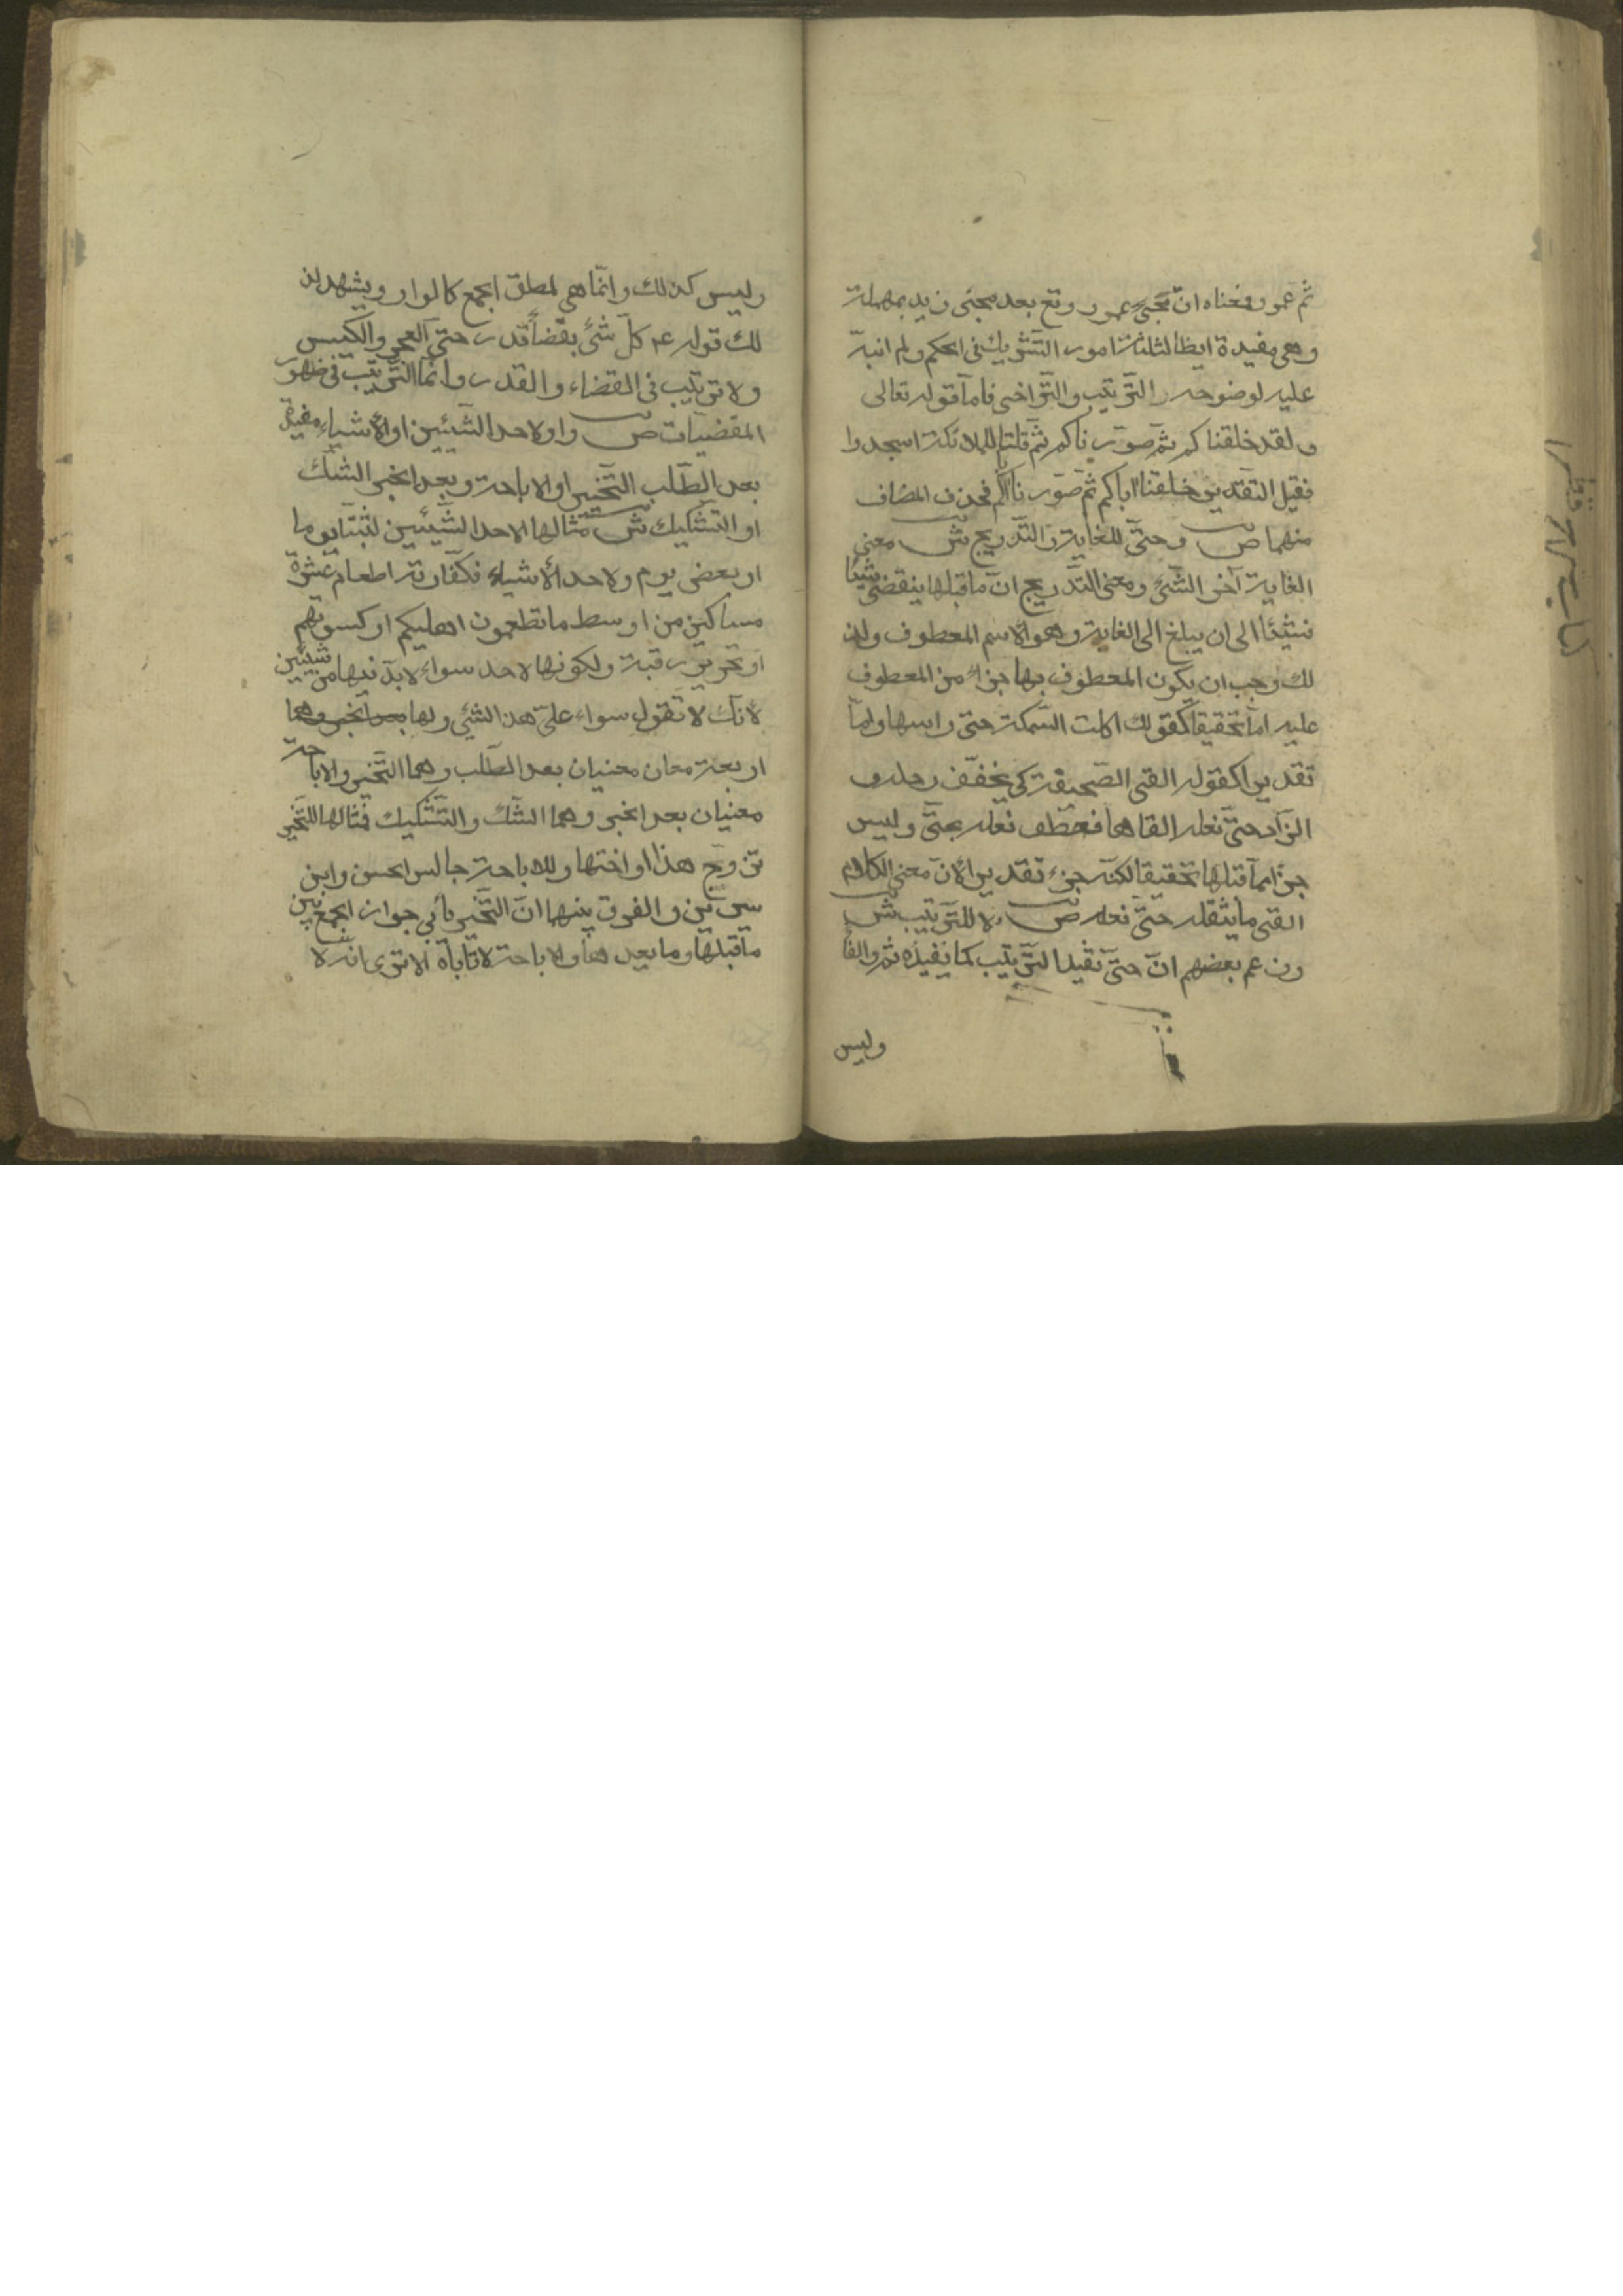 ثم عمرو فمعناه ان مجئ عمرو وقع بعد مجئ زيد بمهملة
وهي مفيدة ايظا لثلثة امور التشريك في الحكم ولم انبه
عليه لوضوحه والترتيب والتراخي فامّا قوله تعالى
ولقد خلقناكم ثم صورناكم ثم قلنا للملائكة اسجدوا
فقيل التقدير خلقنا اباكم ثم صورنا اباكم فحذف المضاف
منهما ص وحتّى للغاية والتّدريج ش معنى
الغاية آخر الشّئ ومعنى التّدريج انّ ما قبلها ينقضى شيئا
فشيئا الى ان يبلغ الى الغاية وهو الاسم المعطوف ولذ
لك وجب ان يكون المعطوف بها جزأ من المعطوف
عليه امّا تحقيقا كقولك اكلت السّمكة حتى راسها وامّا
تقديرا كقوله القى الصّحيفة كي يخفّف رحله و
الزّاد حتّى نعله القاها فعطف نعله بحتّى وليس
جزأ ممّا قبلها تحقيقا لكنّه جزء تقديرا لانّ معنى الكلام
القى ما يثقله حتّى نعله ص لا للتّرتيب ش
وزعم بعضهم انّ حتّى تفيد التّرتيب كما تفيده ثم والفا
وليس
وليس كذلك وانّما هي لمطلق الجمع كالواو ويشهد لذ
لك قوله عم كلّ شئ بقضأ وقدر حتى العجز والكيس
ولا ترتيب في القضاء والقدر وانّما التّرتيب في ظهور
المقضيات ص واو لاحد الشّيئين او الأشياء مفيدة
بعد الطّلب التّخيير او الاباحة وبعد الخبر الشّك
او التّشكيك ش مثالها لاحد الشّيئين لبثنا يوما
او بعض يوم ولاحد الأشياء فكفّارته اطعام عشرة
مساكين من اوسط ما تطعمون اهليكم او كسوتهم
او تحرير رقبة ولكونها لاحد سواء لابدّ فيها من شيئين
لأنّك لا تقول سواء علىّ هذا الشئ ولها بعد الخبر وهما
اربعة معان معنيان بعد الطّلب وهما التّخيير والاباحة
معنيان بعد الخبر وهما الشّك والتّشكيك فمثالها للتّخيير
تزوّج هذا او اختها وللاباحة جالس الحسن وابن
سيرين والفرق بينها انّ التّخيير يأبي جواز الجمع بين
ما قبلها وما بعدها والاباحة لا تاباه الا ترى انّه لا